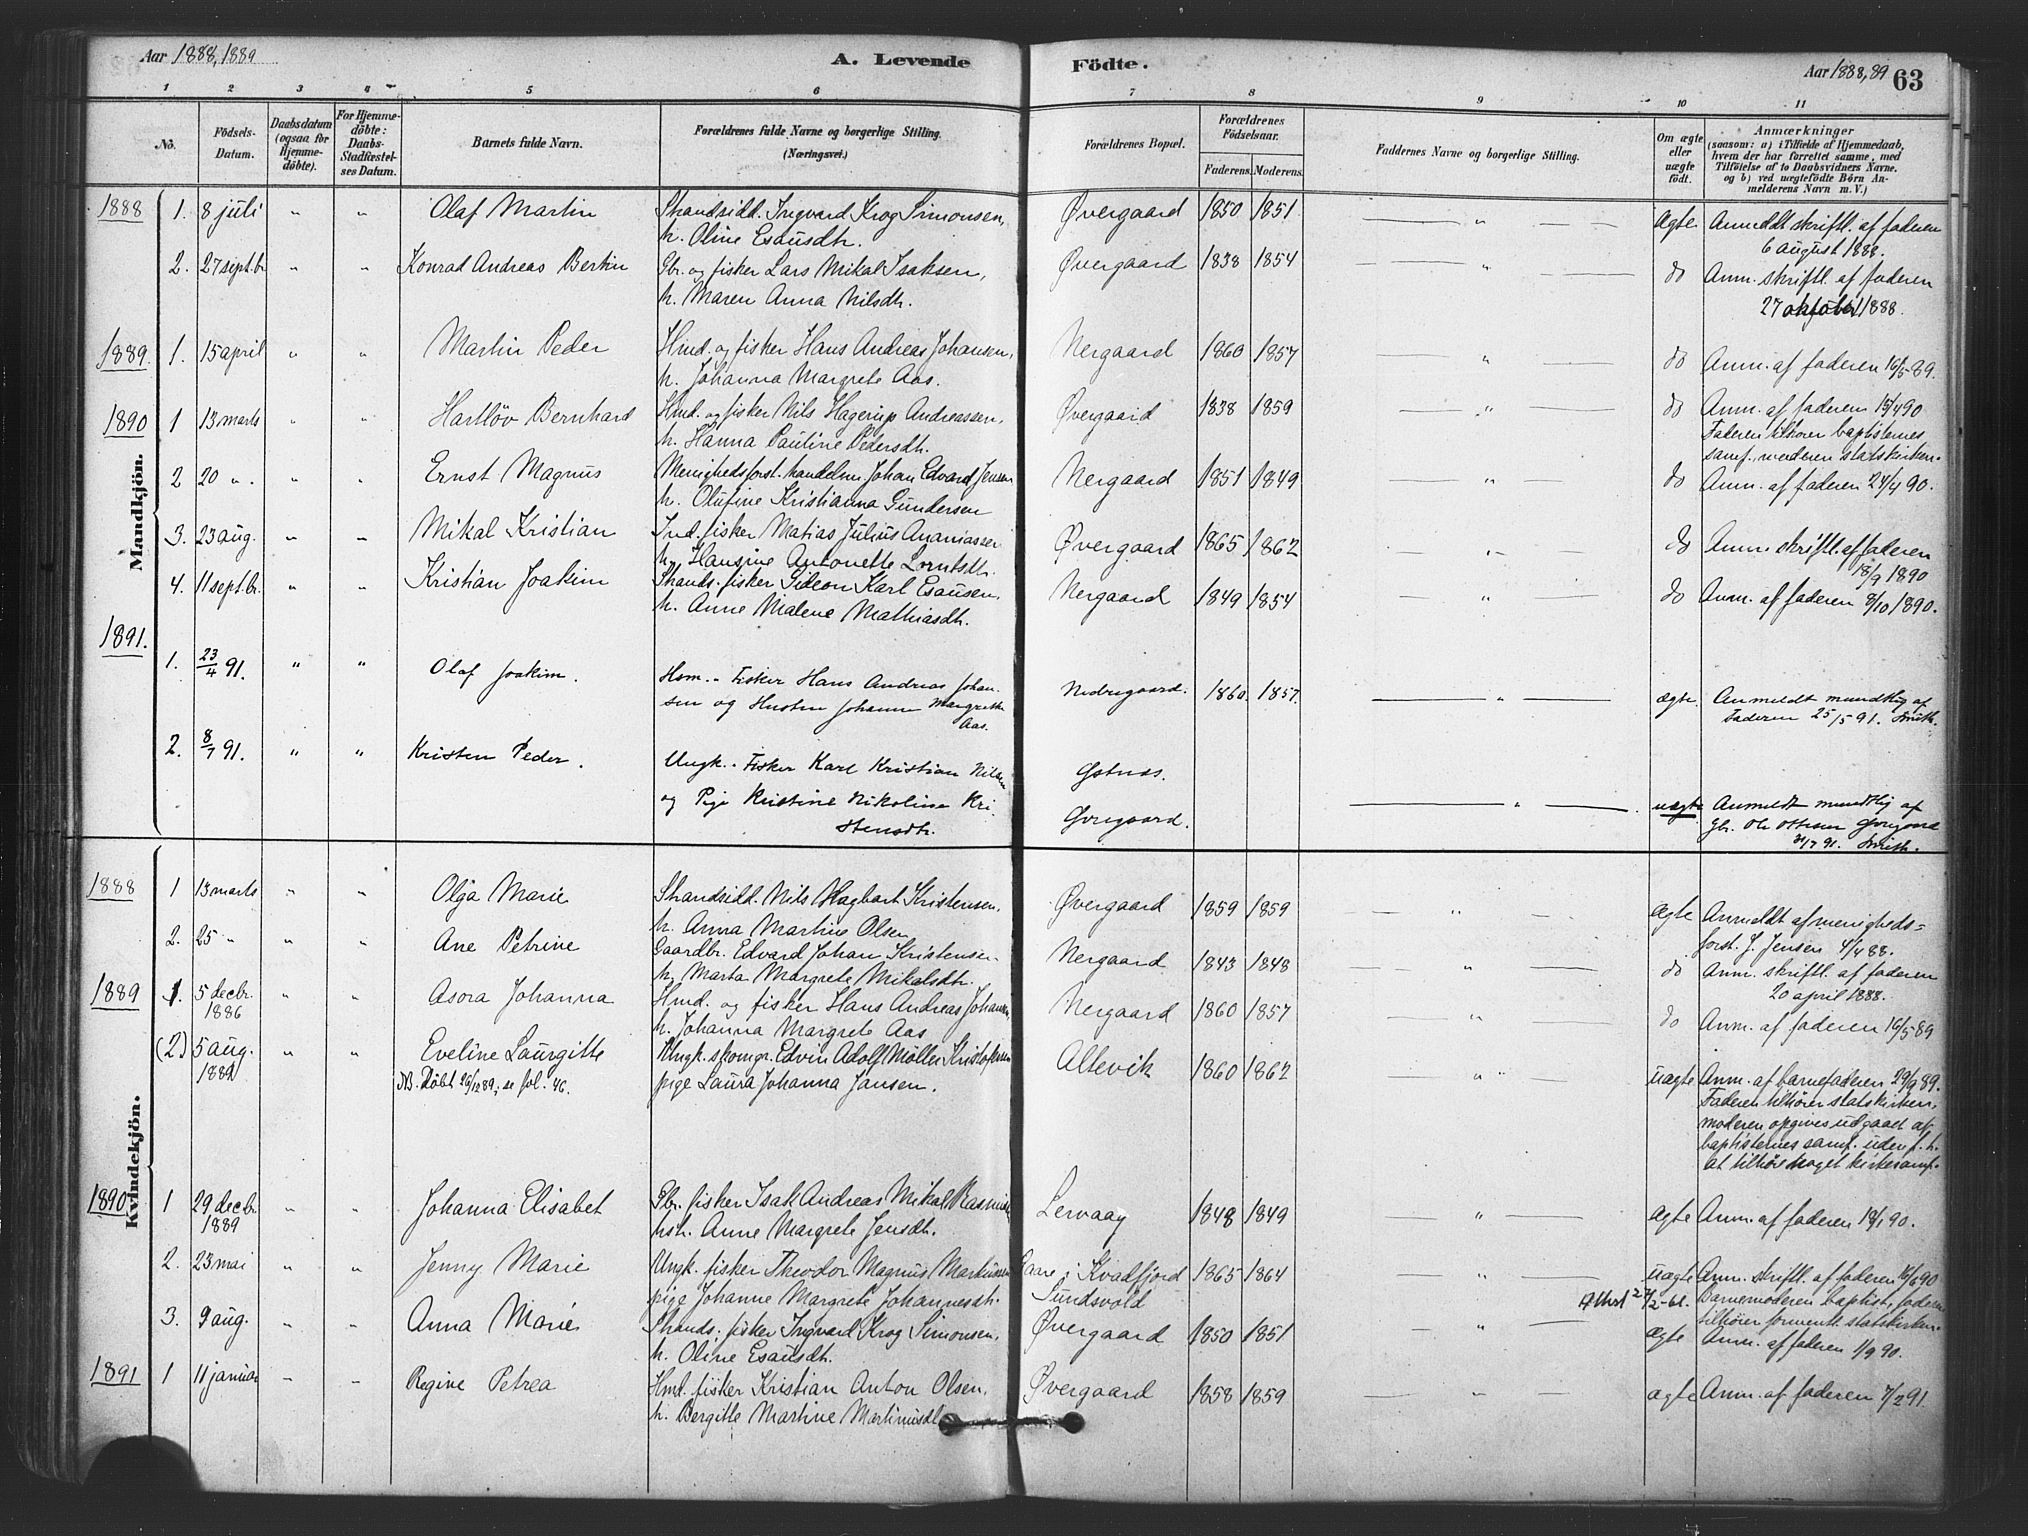 Aar 1888, 1889
A. Levende Födte.
Aar 1888, 89 63
1 2 3 4 5 6 7 8 9 10 11
Nö.
Födsels-Datum.
Daabsdatum (ogsaa for Hjemmedöbte).
For Hjemmedöbte: Daabs-Stadfæstelses Datum.
Barnets fulde Navn.
Forældrenes fulde Navne og borgerlige Stilling.
(Næringsvei.)
Forældrenes Bopæl.
Forældrenes Födselsaar.
Faderens. Moderens.
Faddernes Navne og borgerlige Stilling.
Om ægte eller uægte födt.
Anmærkninger
(saasom: a) i Tilfælde af Hjemmedaab, hvem der har forrettet samme, med Tilföielse af to Daabsvidners Navne. og b) ved uægtefödte Börn Anmelderens Navn m. V.)
Mandkjön.
1888 1. 8 juli " " Olaf Martin Strandsidd. Ingvard Krog Simonsen, Øvergaard 1850 1851 " Ægte Anmeldt skriftl. af faderen
h. Oline Esausdtr. 6 august 1888.
2. 27 septbr " " Konrad Andreas Bertin Gbr. og fisker Lars Mikal Isaksen, Øvergaard 1838 1854 " do Anm. skriftl. af faderen
h. Maren Anna Nilsdtr. 27 oktober 1888.
1889. 1. 15 april " " Martin Peder Hmd. og fisker Hans Andreas Johansen, Nergaard 1860 1857 " do Anm. af faderen 16/5 89.
h. Johanna Margrete Aas.
1890 1 13 marts " " Hartløv Bernhard Hmd. og fisker Nils Hagerup Andreassen, Øvergaard 1838 1859 " do Anm. af faderen 15/4 90
h. Hanna Pauline Pedersdtr. Faderen tilhører baptisternes
samf., moderen statskirken.
2 20 " " " Ernst Magnus Menighedsforst. handelsm. Johan Edvard Jensen Nergaard 1851 1849 " do Anm. af faderen 24/4 90.
h. Olufine Kristianna Gundersen
3. 23 aug. " " Mikal Kristian Ind. fisker Matias Julius Ananiassen Øvergaard 1865 1862 " do Anm. skriftl. af faderen
h. Hansine Antonette Lorntsdtr. 18/9 1890
4. 11 septbr. " " Kristian Joakim Strands. fisker Gideon Karl Esausen, Nergaard 1849 1854 " do Anm. af faderen 8/10 1890.
h. Anne Malene Mathiasdtr.
1891.
1. 23/4 91. " " Olaf Joakim. Hsm. - Fisker Hans Andreas Johan- Nedregaard. 1860. 1857. " ægte Anmeldt mundtlig af
sen og Hustru Johanne Margrethe Faderen 25/5 91. Smith.
Aas.
2. 8/7 91. " " Kristen Peder. Ungk. - Fisker Karl Kristian Nilsen
og Pige Kristine Nikoline Kri- " uægte Anmeldt mundtlig af
stensdtr. Gbr. Ole Ottesen
31/7 91. Smith.
Kvindekjön.
1888 1 13 marts " " Olga Marie Strandsidd. Nils Hagbart Kristensen, Øvergaard 1859 1859 " Ægte Anmeldt af menigheds-
h. Anna Martine Olsen forst. J. Jensen 4/4 88.
2. 25 " " " Ane Petrine Gaardbr. Edvard Johan Kristensen Nergaard 1843 1848 " do Anm. skriftl. af faderen
h. Marta Margrete Mikalsdtr. 20 april 1888.
1889 1. 5 decbr. 1886 " " Asora Johanna Hmd. og fisker Hans Andreas Johansen Nergaard 1860 1857 " do Anm. af faderen 16/5 89
h. Johanna Margrete Aas
(2) 5 aug. 1889 " " Eveline Laurgitte Ungk. skomgr. Edvin Adolf Møller Kristoffersen Altevik 1860 1862 " uægte Anm. af barnefaderen 29/9 89.
NB. Døbt 26/12 89, se fol. 46. pige Laura Johanna Jansen. Faderen tilhører statskirken,
moderen opgives udgaaet af
baptisternes samf. uden f. t.
at tilhøre noget kirkesamf.
1890 1 29 decbr. 1889 " " Johanna Elisabet Gbr. fisker Isak Andreas Mikal Rasmussen Lervaag 1848 1849 " ægte Anm. af faderen 19/1 90.
hstr. Anne Margrete Jensdtr.
2. 23 mai " " Jenny Marie Ungk. fisker Theodor Magnus Markussen Gaare i Kvædfjord 1865 1864 " uægte Anm. skriftl. af faderen 10/6 90
pige Johanne Margrete Johannesdtr. Sundsvold Attest 27/2-61. Barnemoderen baptist, faderen
tilhører forment. statskirken.
3. 9 aug. " " Anna Marie Strands. fisker Ingvard Krog Simonsen, Øvergaard 1850 1851 " ægte Anm. af faderen 1/9 90.
h. Oline Esausdtr.
1891 1 11 januar " " Regine Petrea Hmd. fisker Kristian Anton Olsen, Øvergaard 1858 1859 " ægte Anm. af faderen 7/2 91
h. Bergitte Martine Martinusdtr